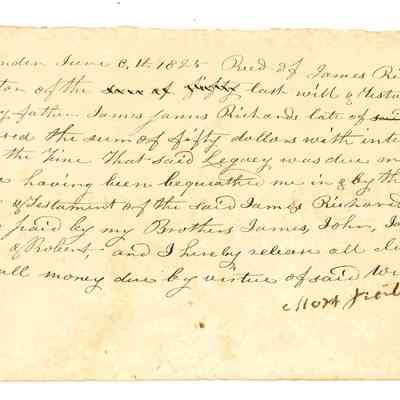 nden June 8th 1825 Recd of James Ri
tor of the sum of fifty last will & Testa
y father James Richards late of
ed the sum of fifty dollars with inte
the Time That said Legacy was due m
having been bequathed me in & by th
& Testament of the said James Richard
paid by my Brothers James, John, J
& Robert, and I hereby release all cl
all money due by virtue of said Wi